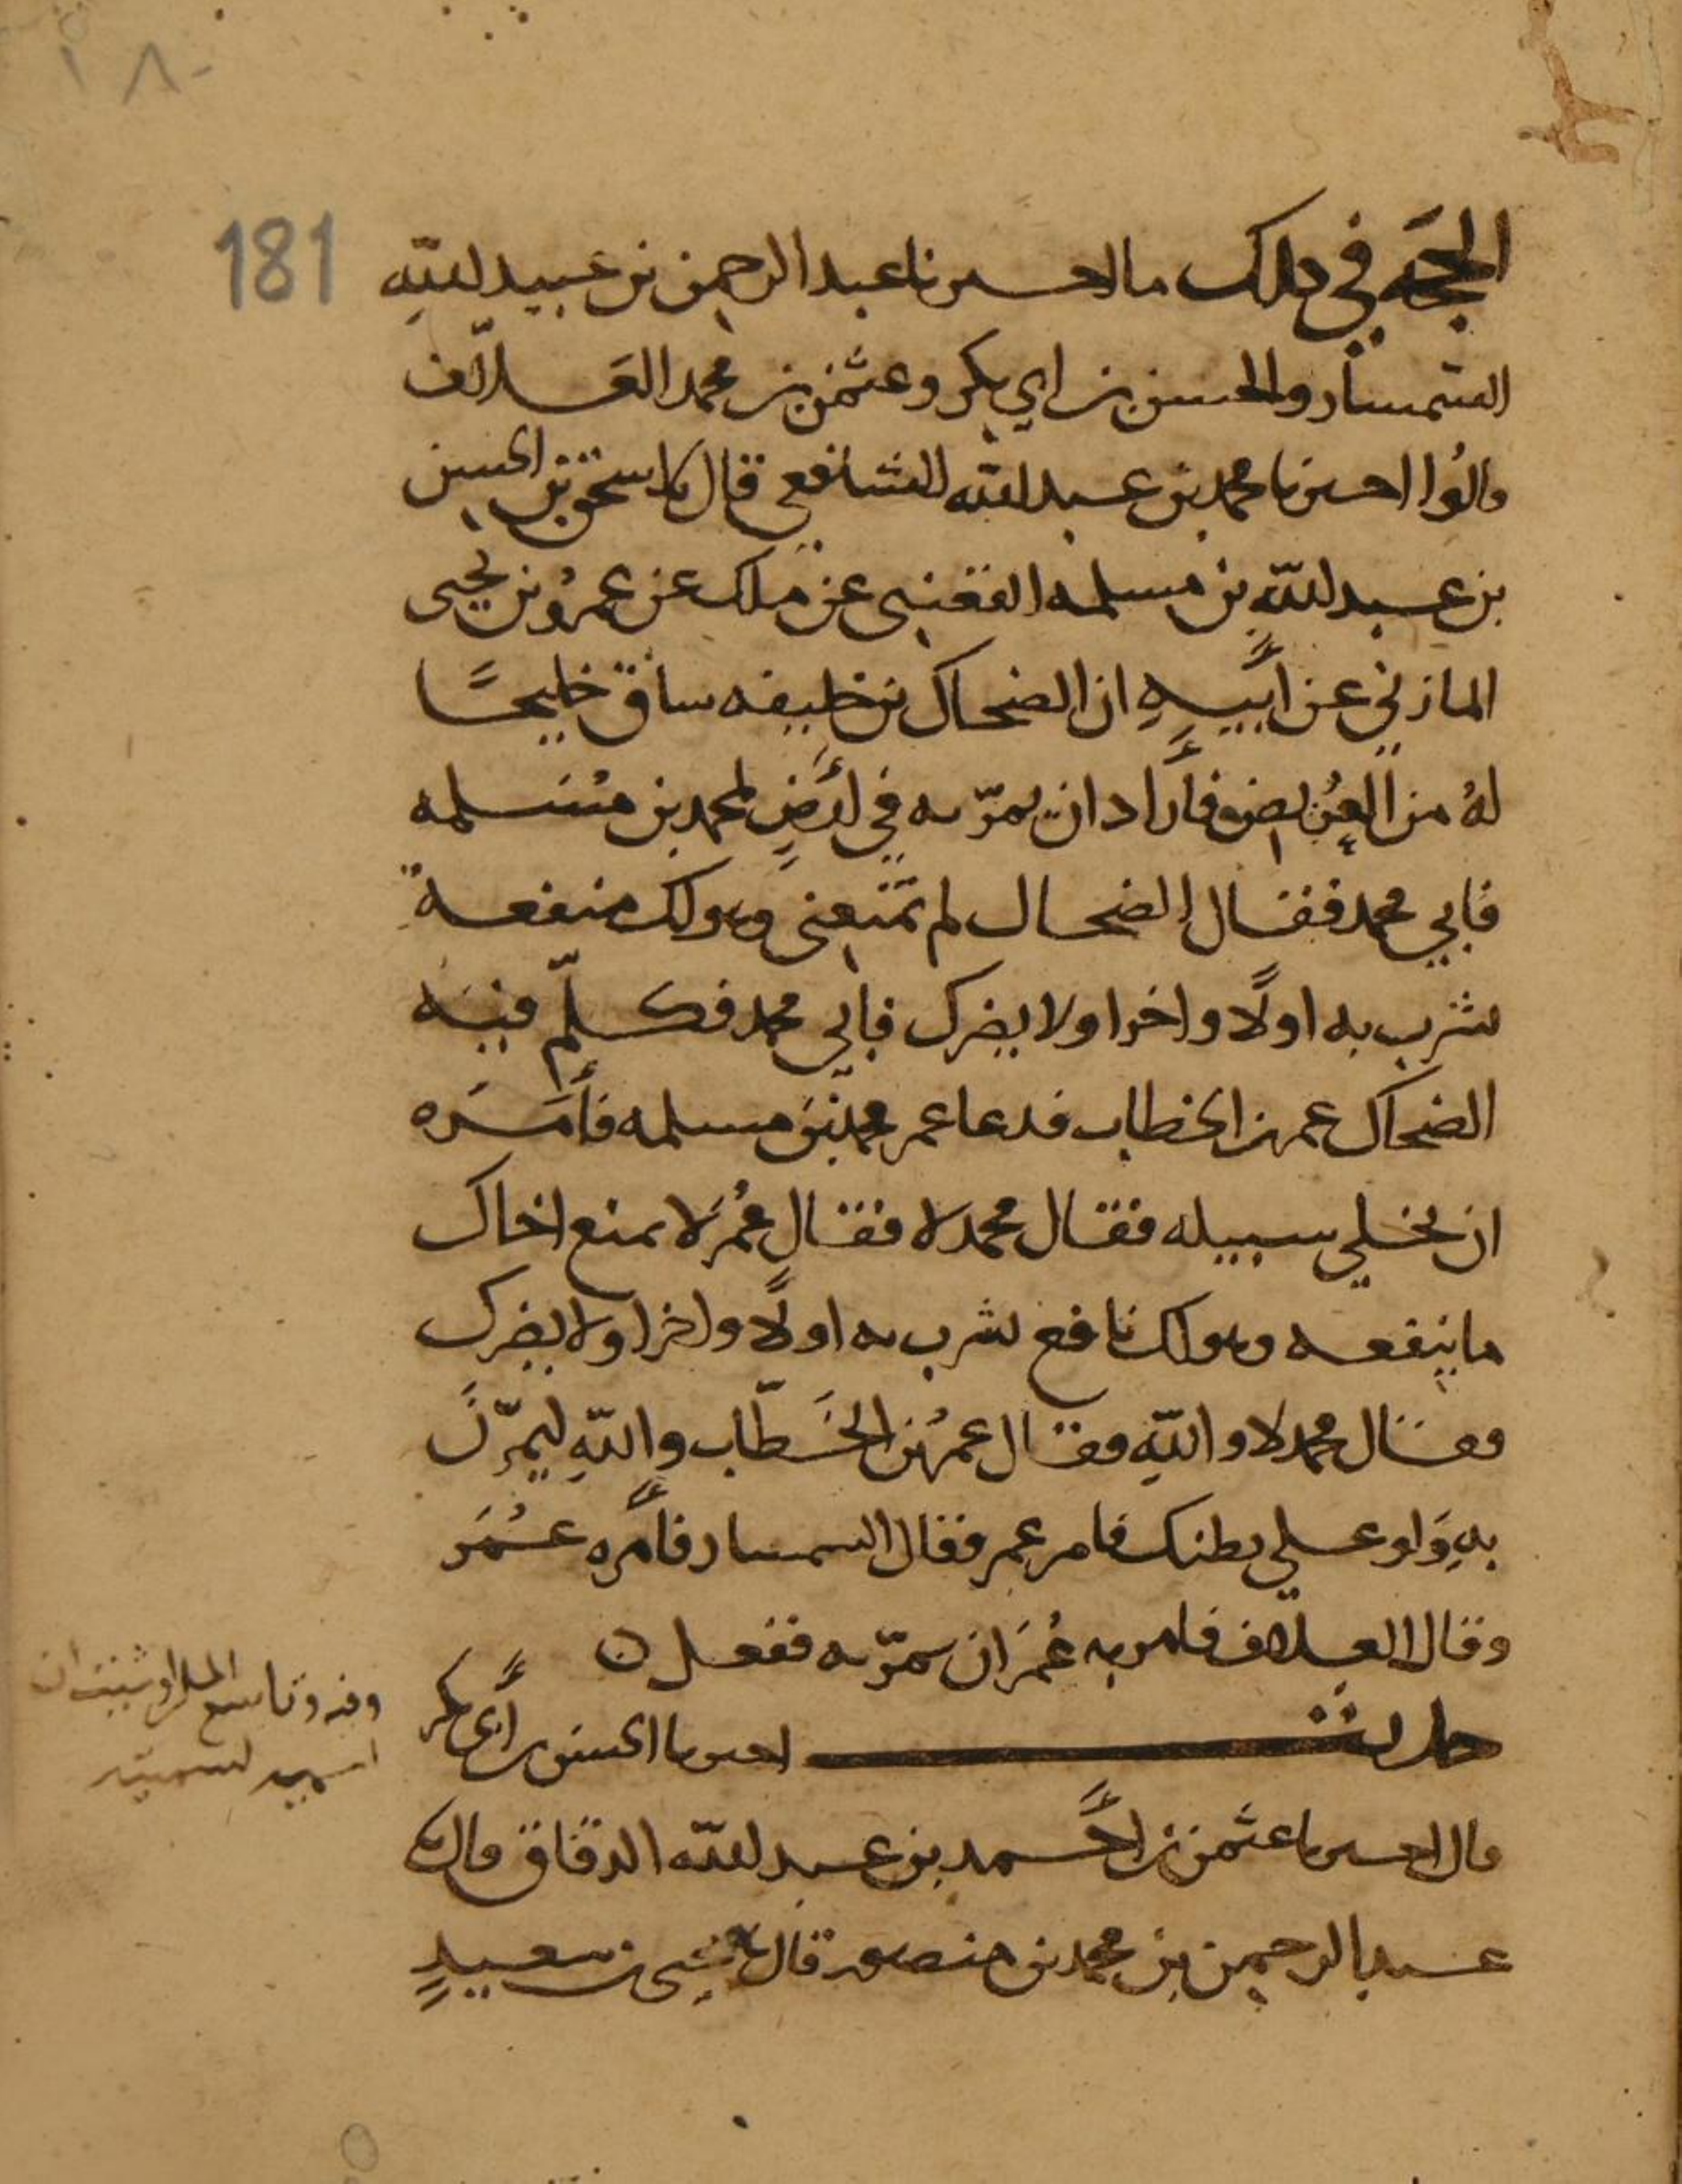 ١٨٠
181
الحجة في ذلك ما اخبرنا عبد الرحمن بن عبيد الله
السمسار والحسن بن ابي بكر وعثمن بن محمد العلاف
قالوا اخبرنا محمد بن عبد الله الشافعي قال نا اسحق بن الحسن
بن عبد الله بن مسلمه القعنبي عن ملك عن عمرو بن يحيى
المازني عن أبيه ان الضحاك بن خليفه ساق خليجًا
له من العريض فأراد ان يمرّ به في أرض لمحمد بن مسلمه
فابي محمد فقال الضحاك لم تمنعني وهو لك منفعة
تشرب به اولًا واخرا ولا يضرك فابي محمد فكلّم فيه
الضحاك عمر بن الخطاب فدعا عمر محمد بن مسلمه فأمره
ان يخلي سبيله فقال محمد لا فقال عمر لا تمنع اخاك
ما ينفعه وهو لك نافع تشرب به اولًا واخرا ولا يضرك
فقال محمد لا والله فقال عمر بن الخطّاب والله ليمرّن
به ولو على بطنك فامر عمر فقال السمسار فأمره عمر
وقال العلاف فامر به عمر ان يمرّ به ففعل ٥
حديث اخبرنا الحسن بن أبي بكر
قال اخبرنا عثمن بن أحمد بن عبد الله الدقاق قال نا
عبد الرحمن بن محمد بن منصور قال نا يحيى بن سعيدٍ